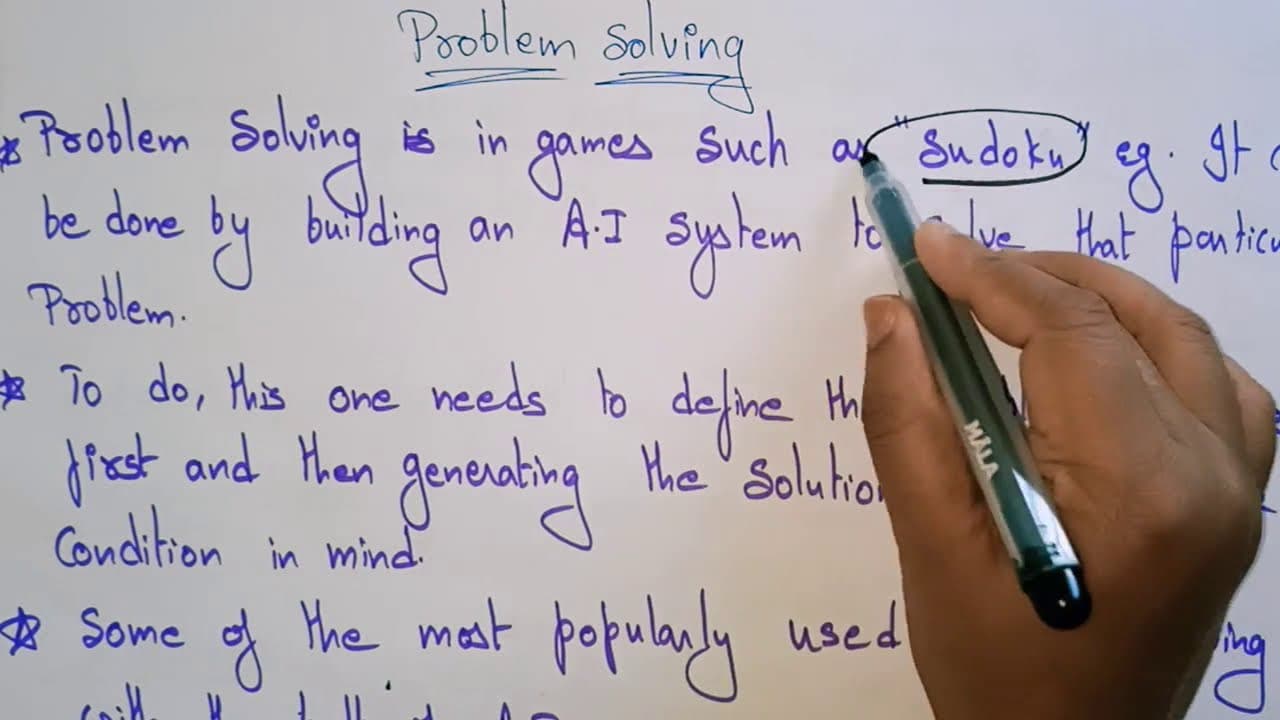 Problem Solving
* Problem Solving is in games such as "Sudoku" eg. It
be done by building an A.I system to that
Problem.
* To do, this one needs to define
first and then generating the solution
Condition in mind.
* Some of the most popularly used
MALA